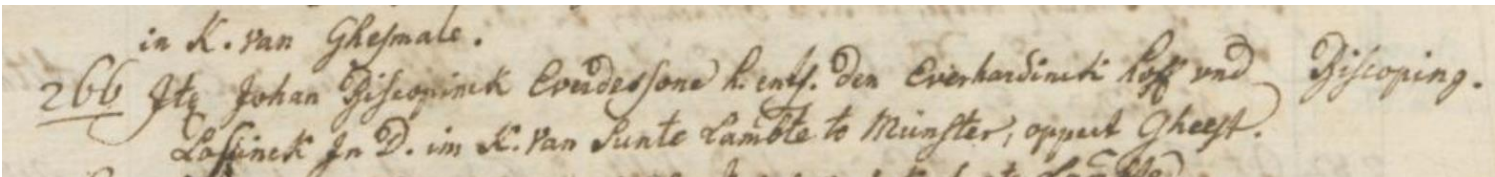 in K. van Ghesmale.
266 Ite Johan Biscopinck Everdessone h. ents. den Everhardinck hoff vnd Biscoping.
Lossinck In D. im K. van Sunte Lambte to Münster, oppet Gheest.